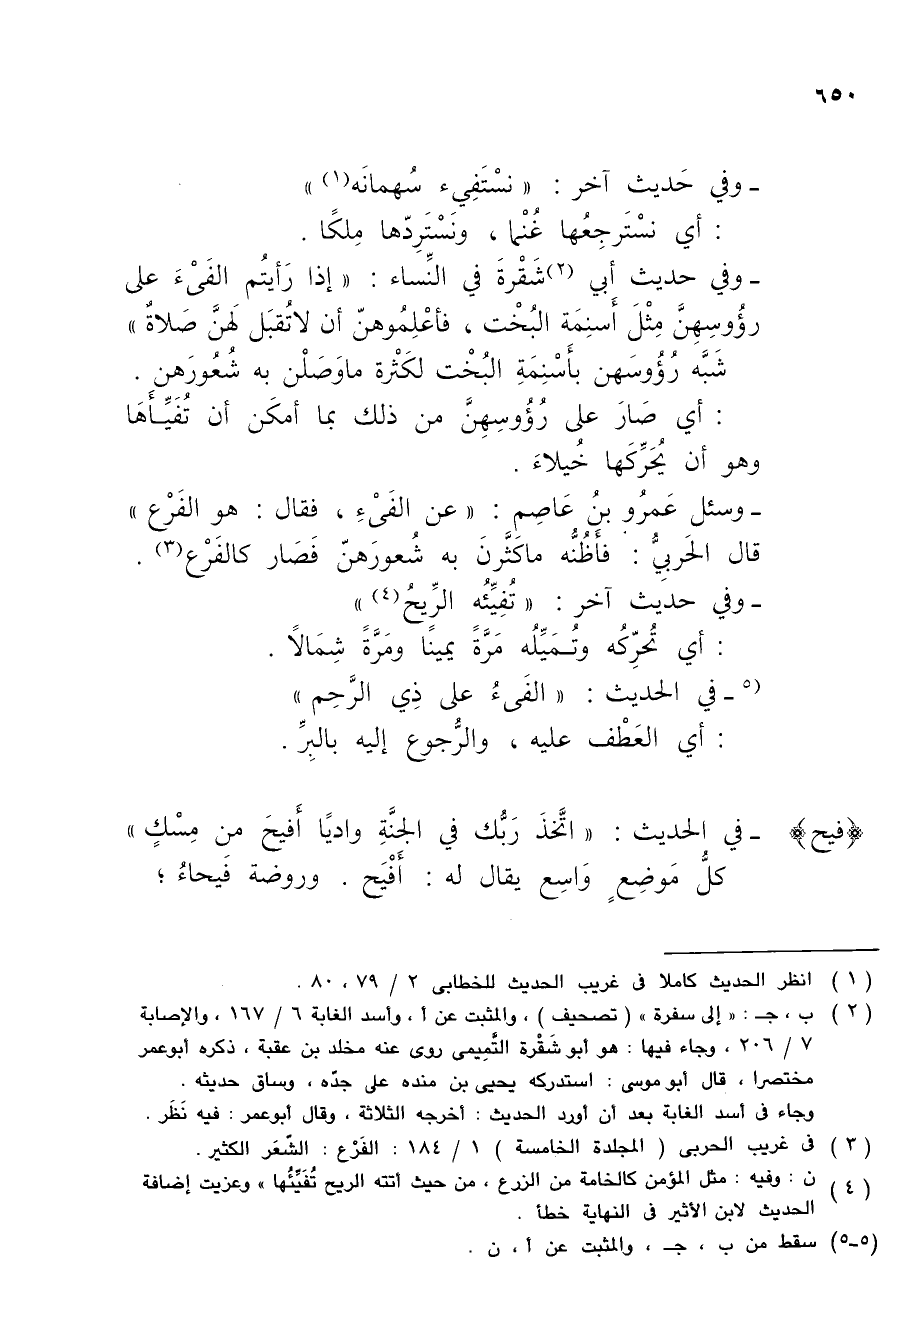 ٦٥٠
ـ وفي حَديث آخر : « نسْتَفِيء سُهمانَه(١) »
: أي نسْتَرجِعُها غُنْما ، ونَسْتَرِدّها مِلكًا .
ـ وفي حديث أبي (٢)شَقْرةَ في النِّساء : « إذا رَأيتُم الفَىْءَ على
رؤُوسِهنَّ مِثْلَ أَسنِمَة البُخْت ، فأعْلِمُوهنّ أن لاتُقبَل لهنَّ صَلاةٌ »
شَبَّه رُؤُوسَهن بأَسْنِمَةِ البُخْت لكَثْرة ماوَصَلْن به شُعُورَهن .
: أي صَارَ على رُؤُوسِهِنَّ من ذلك بما أمكَن أن تُفَيِّـأَهَا
وهو أن يُحَرِّكَها خُيلاءَ .
ـ وسئل عَمرُو بنُ عَاصِم : « عن الفَىْءِ ، فقال : هو الفَرْع »
قال الحَربيُّ : فأَظُنُّه ماكَثَّرنَ به شُعورَهنّ فَصَار كالفَرْع(٣) .
ـ وفي حديث آخر : « تُفيِّئُه الرِّيحُ(٤) »
: أي تُحرِّكُه وتُـمَيِّلُه مَرَّةً يمينًا ومَرَّةً شِمَالاً .
(٥ ـ في الحديث : « الفَىءُ على ذِي الرَّحِم »
: أي العَطْف عليه ، والرُّجوع إليه بالبِرِّ .
﴿فيح﴾ ـ في الحديث : « اتَّخَذَ رَبُّك في الجنَّةِ واديًا أَفيحَ من مِسْكٍ »
كلُّ مَوضِعٍ وَاسِع يقال له : أَفْيَح . وروضة فَيحاءُ ؛
( ١ ) انظر الحديث كاملا فى غريب الحديث للخطابى ٢ / ٧٩ ، ٨٠ .
( ٢ ) ب ، جـ : « إلى سفرة » ( تصحيف ) ، والمثبت عن أ ، وأسد الغابة ٦ / ١٦٧ ، والإصابة
٧ / ٢٠٦ ، وجاء فيها : هو أبو شَقْرة التَّميمى روى عنه مخلد بن عقبة ، ذكره أبوعمر
مختصرا ، قال أبو موسى : استدركه يحيى بن منده على جدّه ، وساق حديثه .
وجاء فى أسد الغابة بعد أن أورد الحديث : أخرجه الثلاثة ، وقال أبوعمر : فيه نَظَر .
( ٣ ) فى غريب الحربى ( المجلدة الخامسة ) ١ / ١٨٤ : الفَرْع : الشَّعَر الكثير .
( ٤ ) ن : وفيه : مثل المؤمن كالخامة من الزرع ، من حيث أتته الريح تُفَيِّئُها » وعزيت إضافة
الحديث لابن الأثير فى النهاية خطأ .
(٥ـ٥) سقط من ب ، جـ ، والمثبت عن أ ، ن .